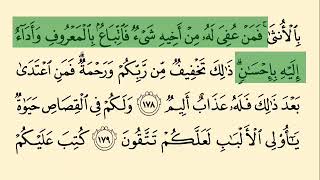 بِٱلْأُنثَىٰ ۚ فَمَنْ عُفِىَ لَهُۥ مِنْ أَخِيهِ شَىْءٌ فَٱتِّبَاعٌۢ بِٱلْمَعْرُوفِ وَأَدَآءٌ
إِلَيْهِ بِإِحْسَـٰنٍ ۗ ذَٰلِكَ تَخْفِيفٌ مِّن رَّبِّكُمْ وَرَحْمَةٌ ۗ فَمَنِ ٱعْتَدَىٰ
بَعْدَ ذَٰلِكَ فَلَهُۥ عَذَابٌ أَلِيمٌ ١٧٨ وَلَكُمْ فِى ٱلْقِصَاصِ حَيَوٰةٌ
يَـٰٓأُو۟لِى ٱلْأَلْبَـٰبِ لَعَلَّكُمْ تَتَّقُونَ ١٧٩ كُتِبَ عَلَيْكُمْ